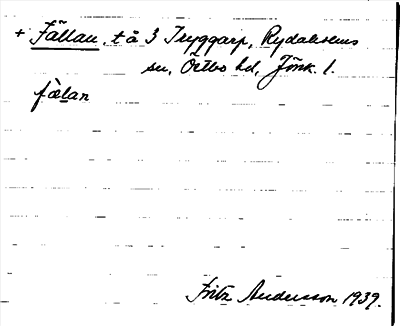 + Fållan, t å 3 Tryggarp, Rydaholms
sn, Östbo hd, Jönk. l.
fålan
Fritz Andersson 1939.